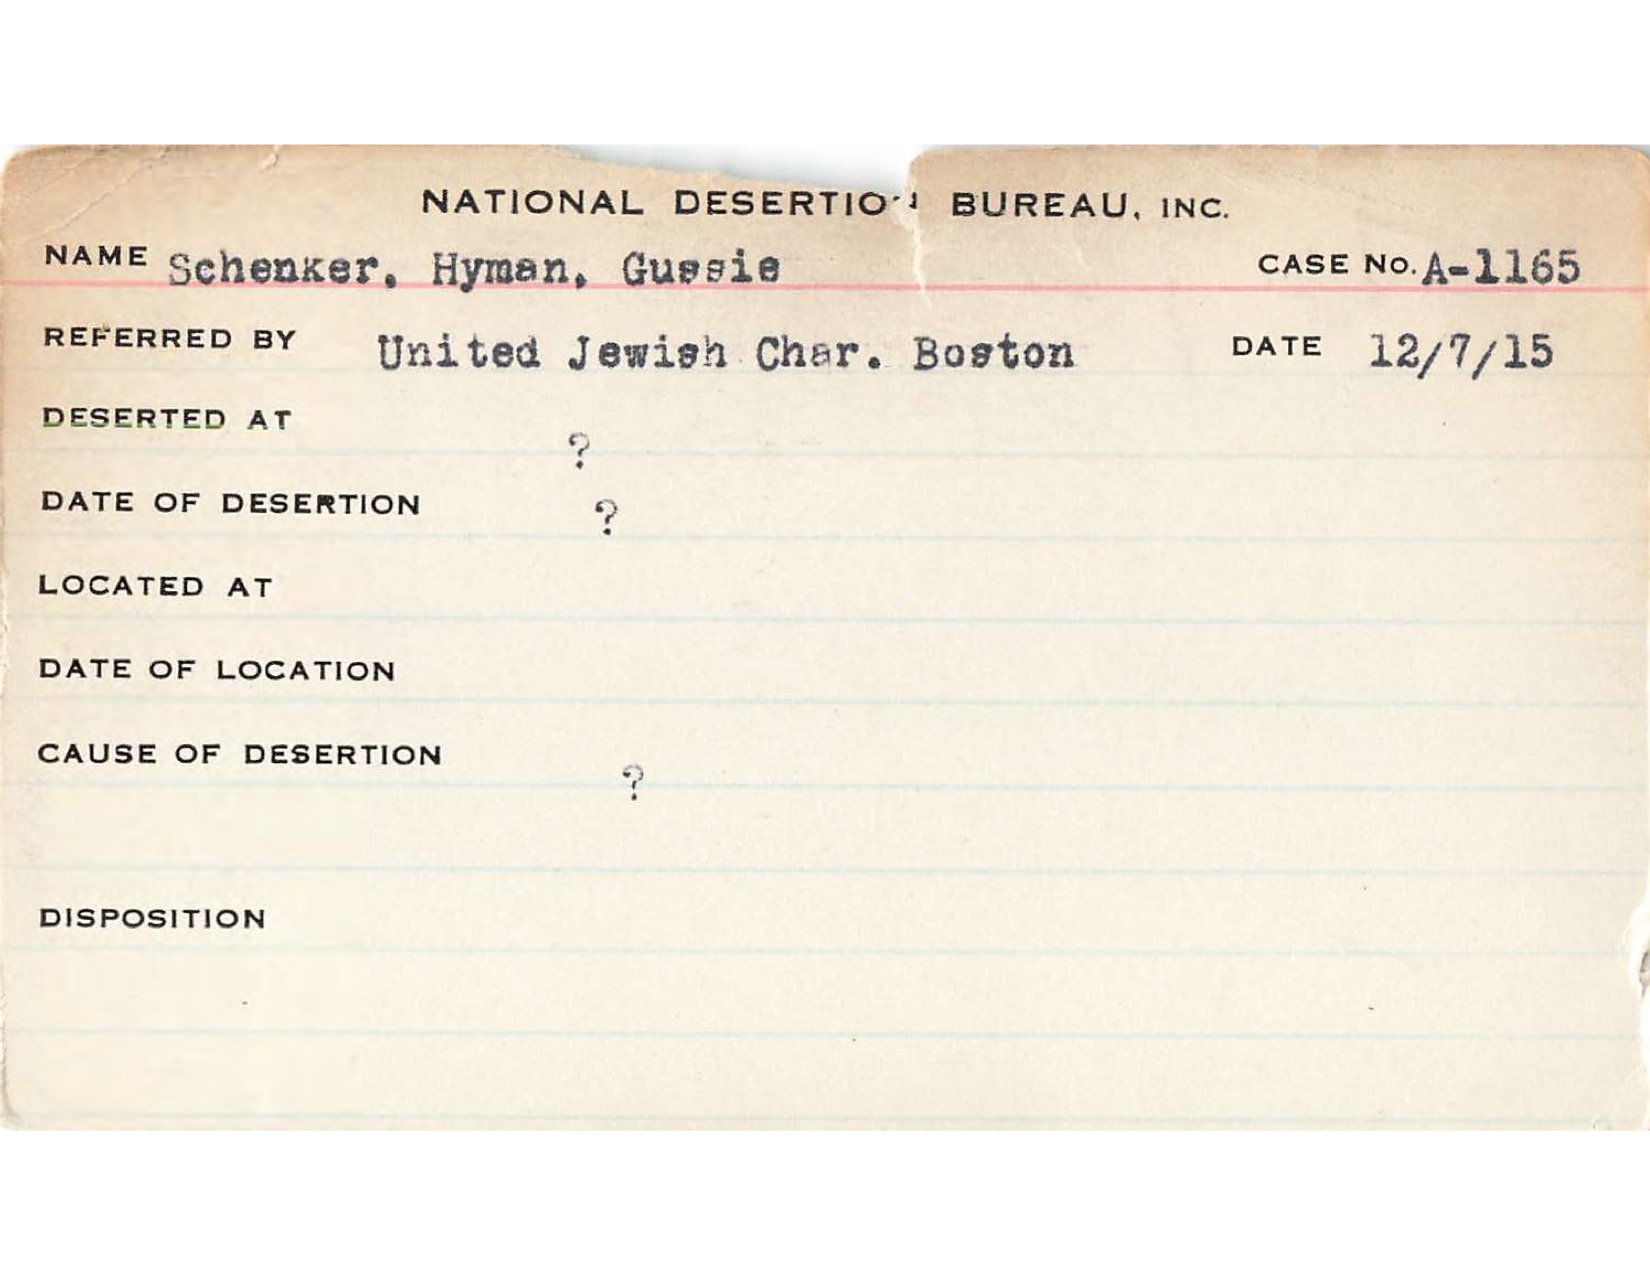 NATIONAL DESERTION BUREAU, INC.
NAME Schenker, Hyman, Gussie CASE No. A-1165
REFERRED BY United Jewish Char. Boston DATE 12/7/15
DESERTED AT ?
DATE OF DESERTION ?
LOCATED AT
DATE OF LOCATION
CAUSE OF DESERTION ?
DISPOSITION